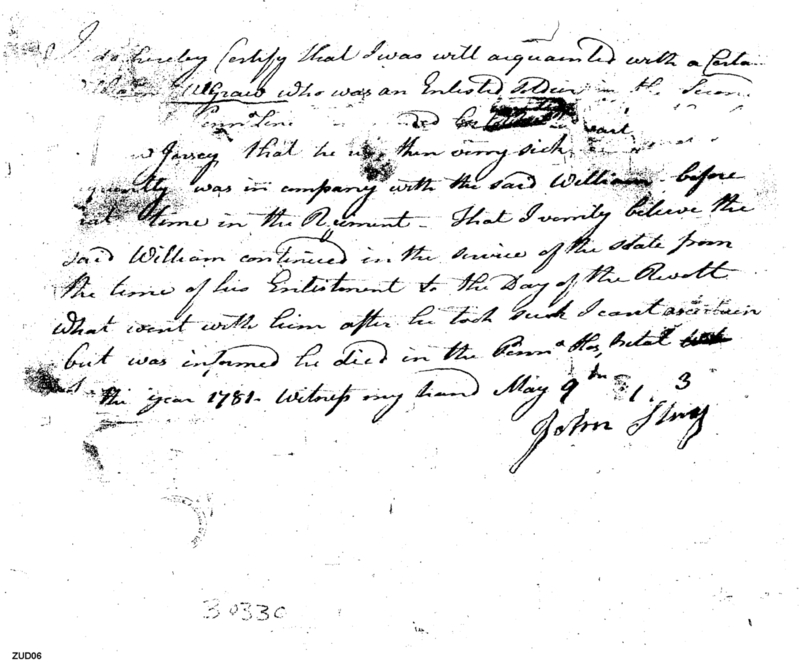 I do hereby Certify that I was will acquainted with a Certain
William McGraw who was an Enlisted Soldier in the Secon
Pennᵃ Line
Jersey that he was then verry sick
quently was in company with the said William before
that time in the Regiment - That I verrily believe the
said William continued in the service of the state from
the time of his Enlistment to the Day of the Revolt
what went with him after he took sick I cant ascertain
but was informed he died in the Pennᵃ Hospital
the year 1781. Witness my hand May 9th
John
30330
ZUD06